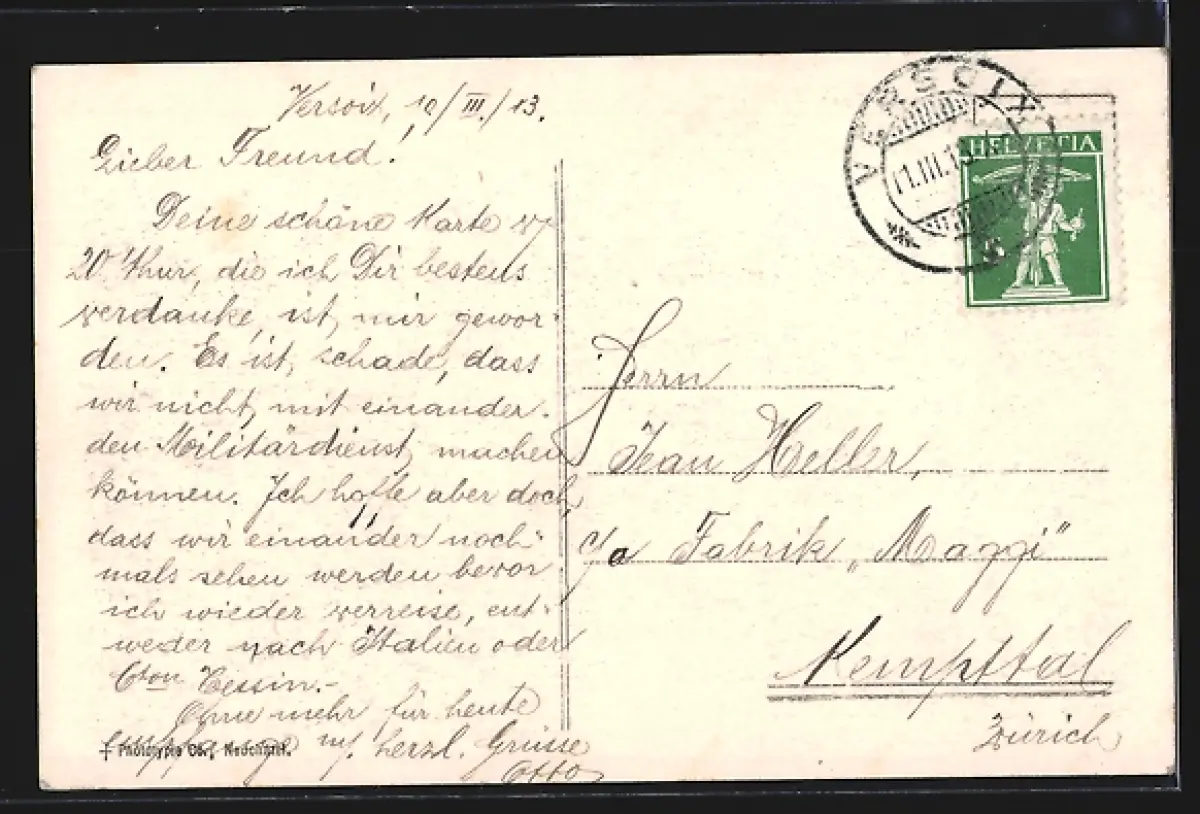 Versoix, 10/III./13.
Lieber Freund!
Deine schöne Karte v.
20. Thur, die ich Dir bestens
verdanke, ist mir gewor-
den. Es ist schade, dass
wir nicht mit einander
den Militärdienst machen
können. Ich hoffe aber doch,
dass wir einander noch-
mals sehen werden bevor
ich wieder verreise, ent-
weder nach Italien oder
Cton Tessin.-
Ohne mehr für heute
empfange m/. herzl. Grüsse
Otto
Phototypie Co., Neuchâtel.
VERSOIX
11.III.13
HELVETIA
5
Herrn
Jean Heller,
c/o Fabrik „Maggi"
Kempttal
Zürich